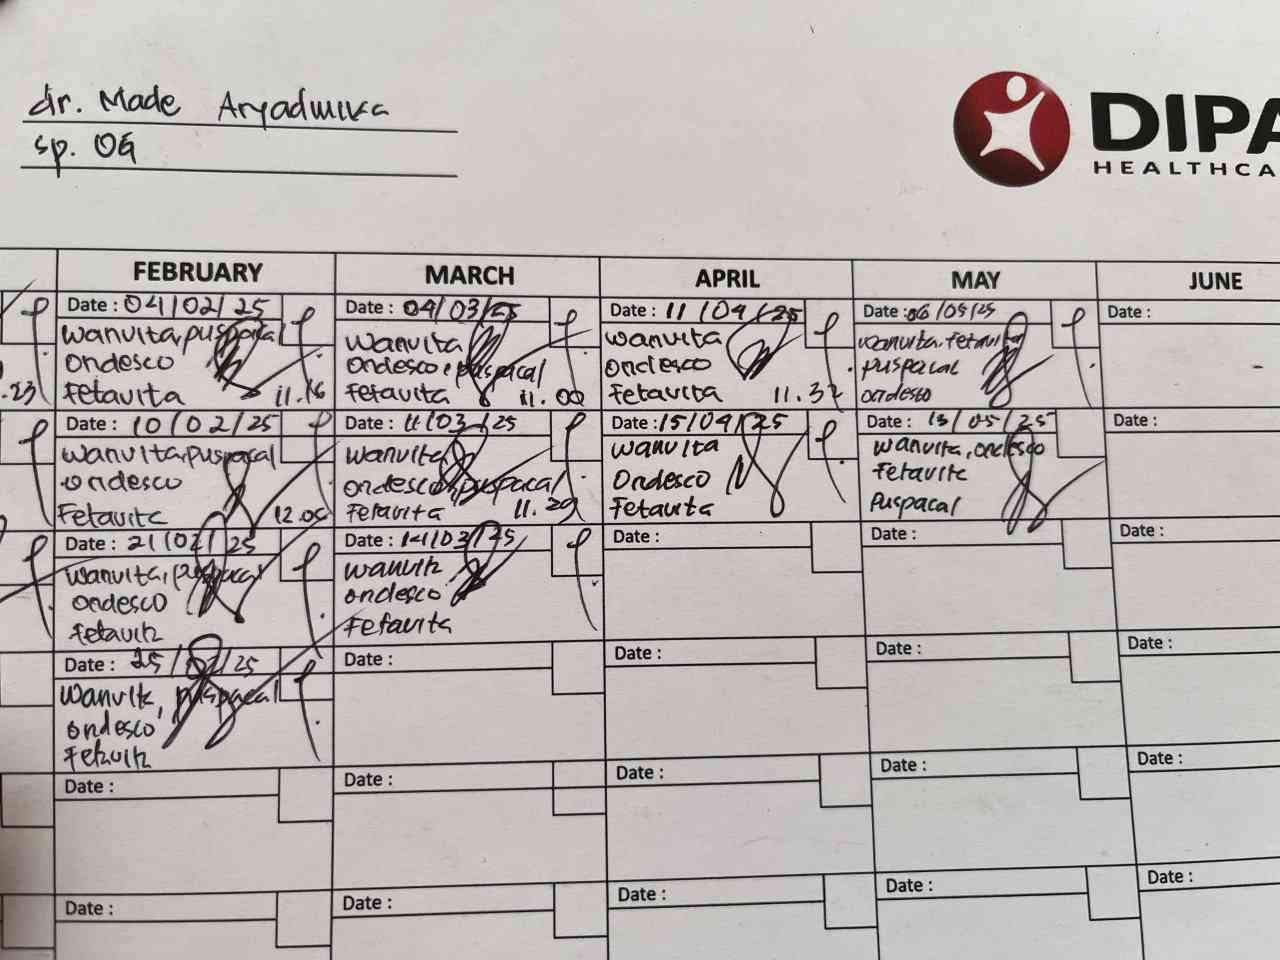 dr. Made Aryadmika
sp. OG
DIPA
HEALTHCA
FEBRUARY
MARCH
APRIL
MAY
JUNE
Date : 04/02/25
wanvita, puspacal
ondesco
Fetavita 11.16
Date : 04/03/25
wanvita
ondesco, puspacal
Fetavita 11.00
Date : 11/04/25
wanvita
ondesco
Fetavita 11.32
Date : 06/05/25
wanvita, Fetavita
puspacal
ondesco
Date :
.23
Date : 10/02/25
wanvita, puspacal
ondesco
Fetavita 12.05
Date : 11/03/25
wanvita
ondesco, puspacal
Fetavita 11.29
Date : 15/04/25
wanvita
Ondesco
Fetavita
Date : 13/05/25
wanvita, ondesco
Fetavita
Puspacal
Date :
Date : 21/02/25
wanvita, puspacal
ondesco
Fetavita
Date : 14/03/25
wanvita
ondesco
Fetavita
Date :
Date :
Date :
Date : 25/02/25
wanvita, puspacal
ondesco
Fetavita
Date :
Date :
Date :
Date :
Date :
Date :
Date :
Date :
Date :
Date :
Date :
Date :
Date :
Date :